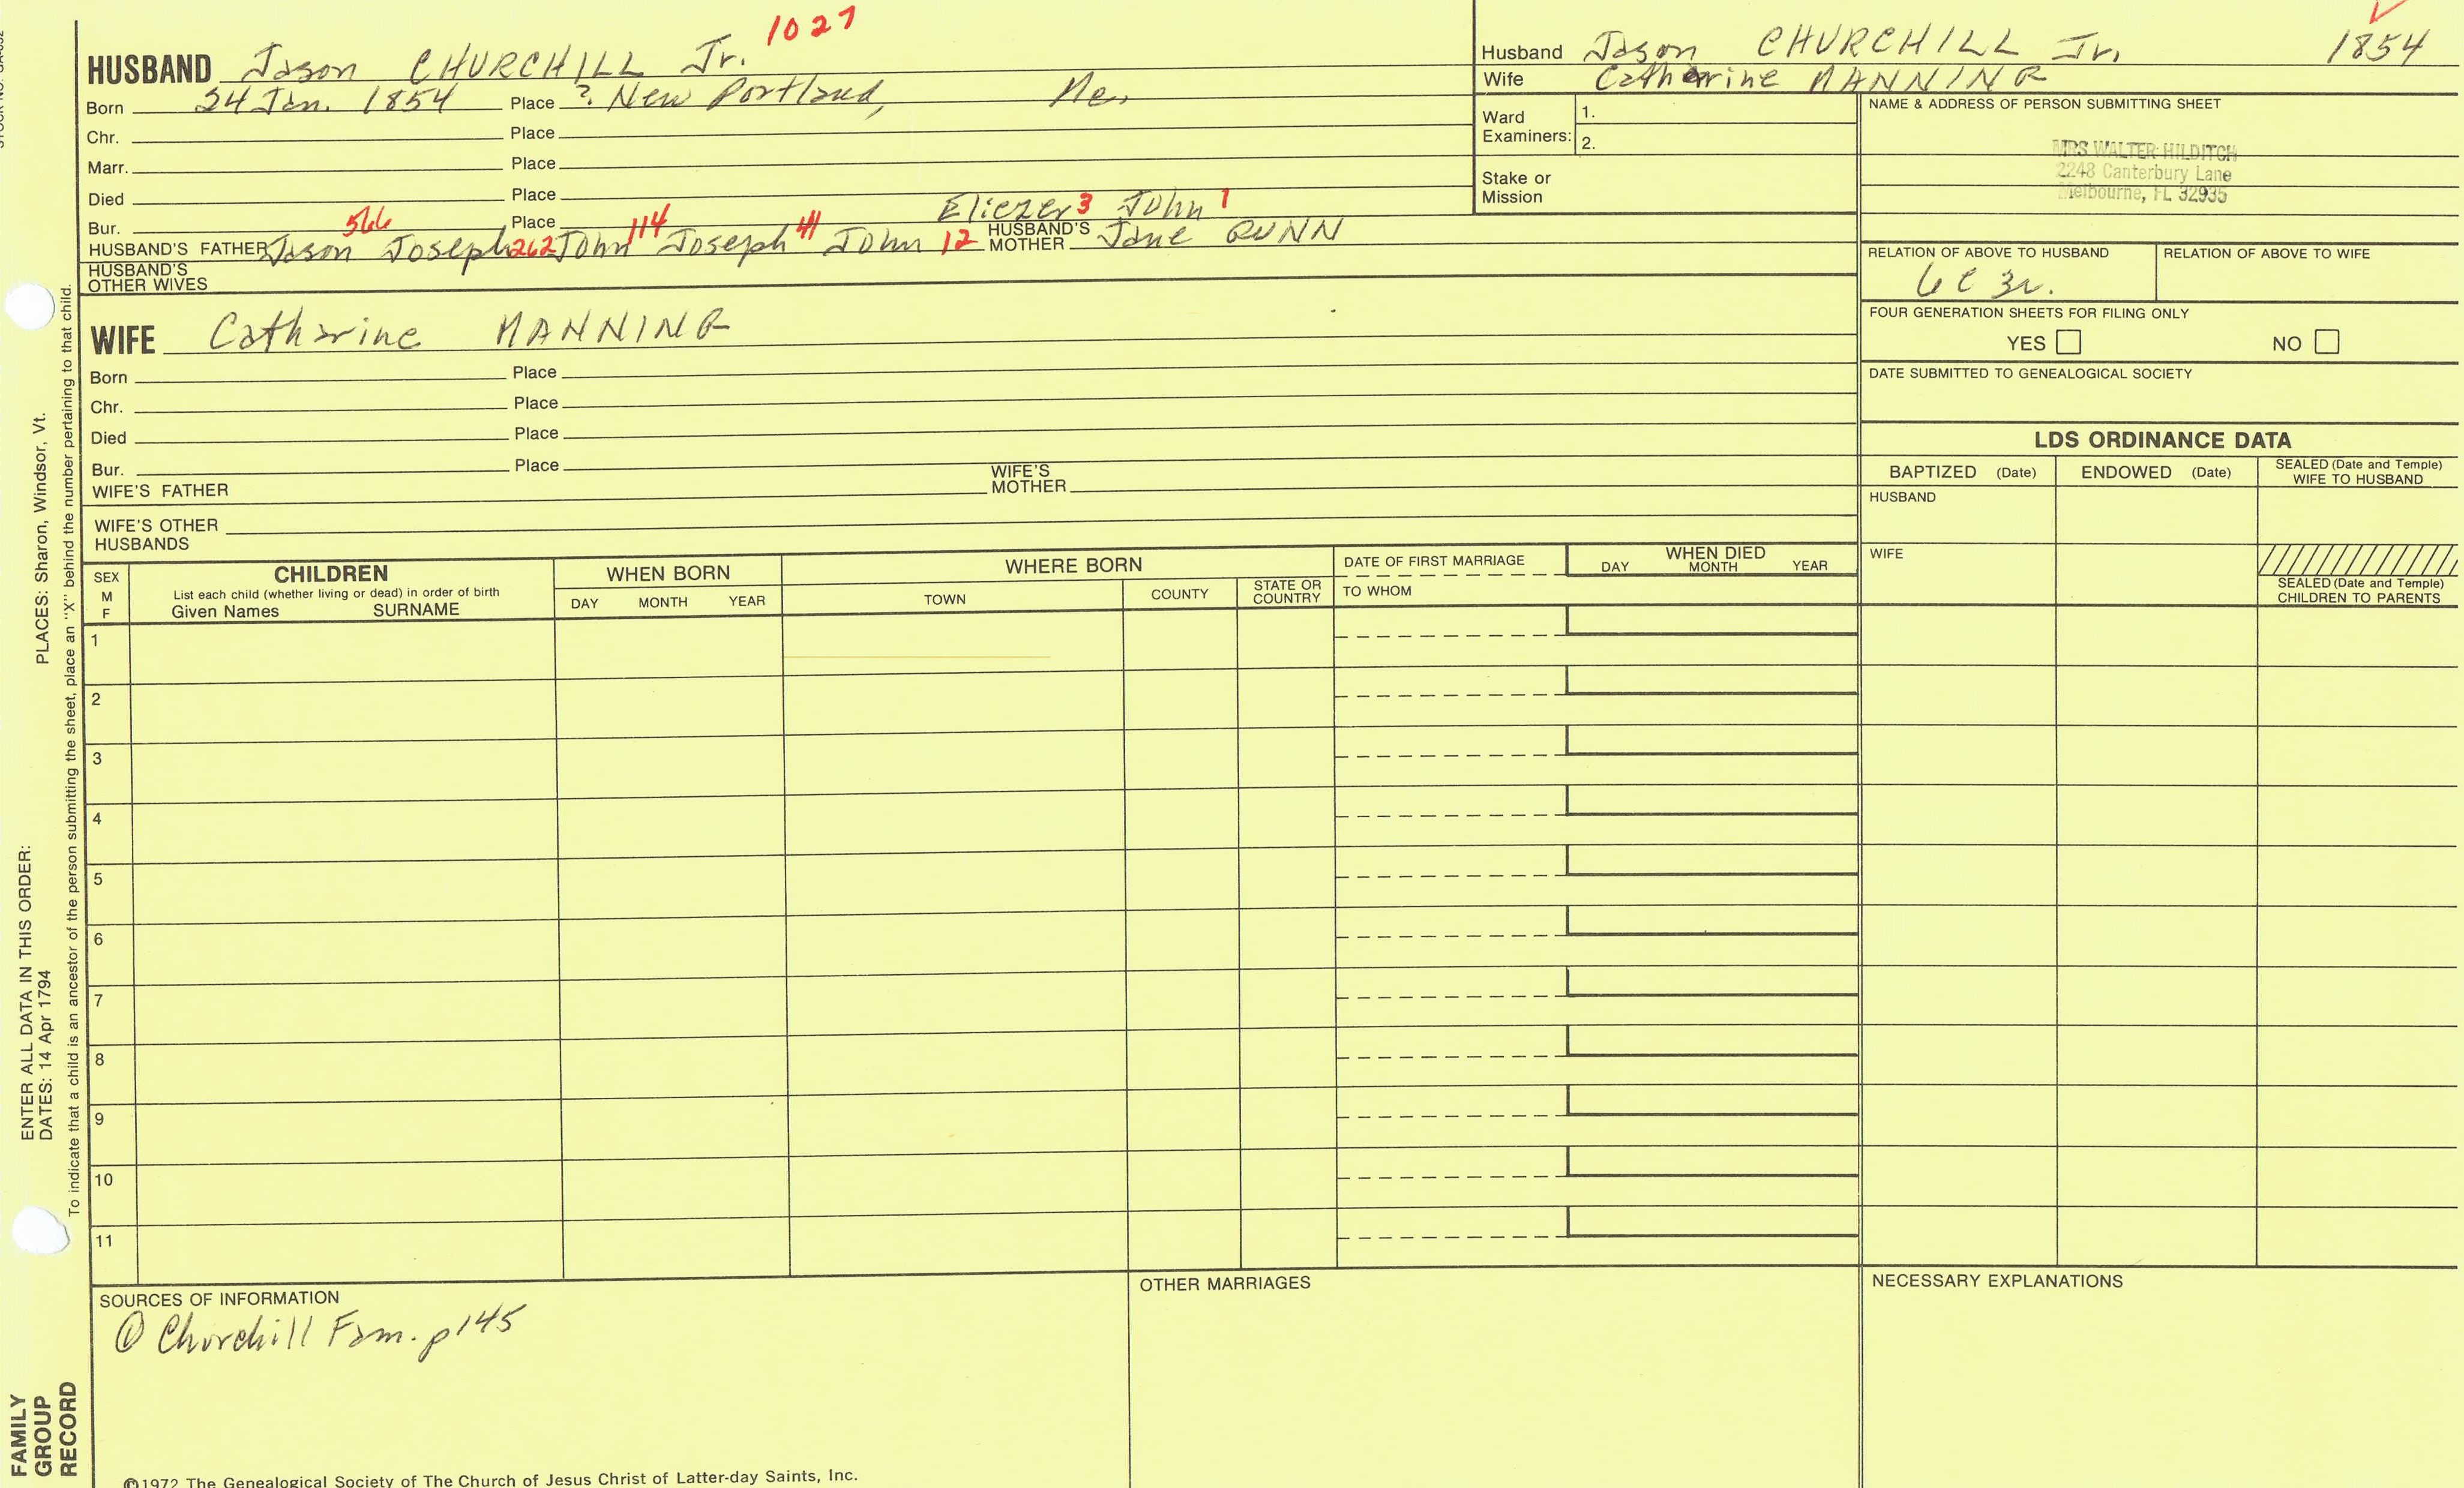 1027
HUSBAND Jason CHURCHILL Jr.
Born 24 Jan. 1854 Place ? New Portland, Me.
Chr. Place
Marr. Place
Died Place
Eliezer 3 John 1
Bur. Place
HUSBAND'S FATHER Jason 566 Joseph 262 John 114 Joseph 41 John 12 HUSBAND'S MOTHER Jane GUNN
HUSBAND'S OTHER WIVES
WIFE Catharine MANNING
Born Place
Chr. Place
Died Place
Bur. Place
WIFE'S FATHER WIFE'S MOTHER
WIFE'S OTHER HUSBANDS
Husband Jason CHURCHILL Jr. 1854
Wife Catharine MANNING
Ward Examiners: 1.
2.
Stake or Mission
NAME & ADDRESS OF PERSON SUBMITTING SHEET
MRS WALTER HILDITCH
2248 Canterbury Lane
Melbourne, FL 32935
RELATION OF ABOVE TO HUSBAND RELATION OF ABOVE TO WIFE
6C 3r.
FOUR GENERATION SHEETS FOR FILING ONLY
YES NO
DATE SUBMITTED TO GENEALOGICAL SOCIETY
LDS ORDINANCE DATA
BAPTIZED (Date) ENDOWED (Date) SEALED (Date and Temple) WIFE TO HUSBAND
HUSBAND
WIFE
SEALED (Date and Temple) CHILDREN TO PARENTS
SEX M F
CHILDREN
List each child (whether living or dead) in order of birth
Given Names SURNAME
WHEN BORN
DAY MONTH YEAR
WHERE BORN
TOWN COUNTY STATE OR COUNTRY
DATE OF FIRST MARRIAGE
TO WHOM
WHEN DIED
DAY MONTH YEAR
1
2
3
4
5
6
7
8
9
10
11
SOURCES OF INFORMATION
① Churchill Fam. p 145
OTHER MARRIAGES
NECESSARY EXPLANATIONS
©1972 The Genealogical Society of The Church of Jesus Christ of Latter-day Saints, Inc.
FAMILY GROUP RECORD
ENTER ALL DATA IN THIS ORDER:
DATES: 14 Apr 1794 PLACES: Sharon, Windsor, Vt.
To indicate that a child is an ancestor of the person submitting the sheet, place an "X" behind the number pertaining to that child.